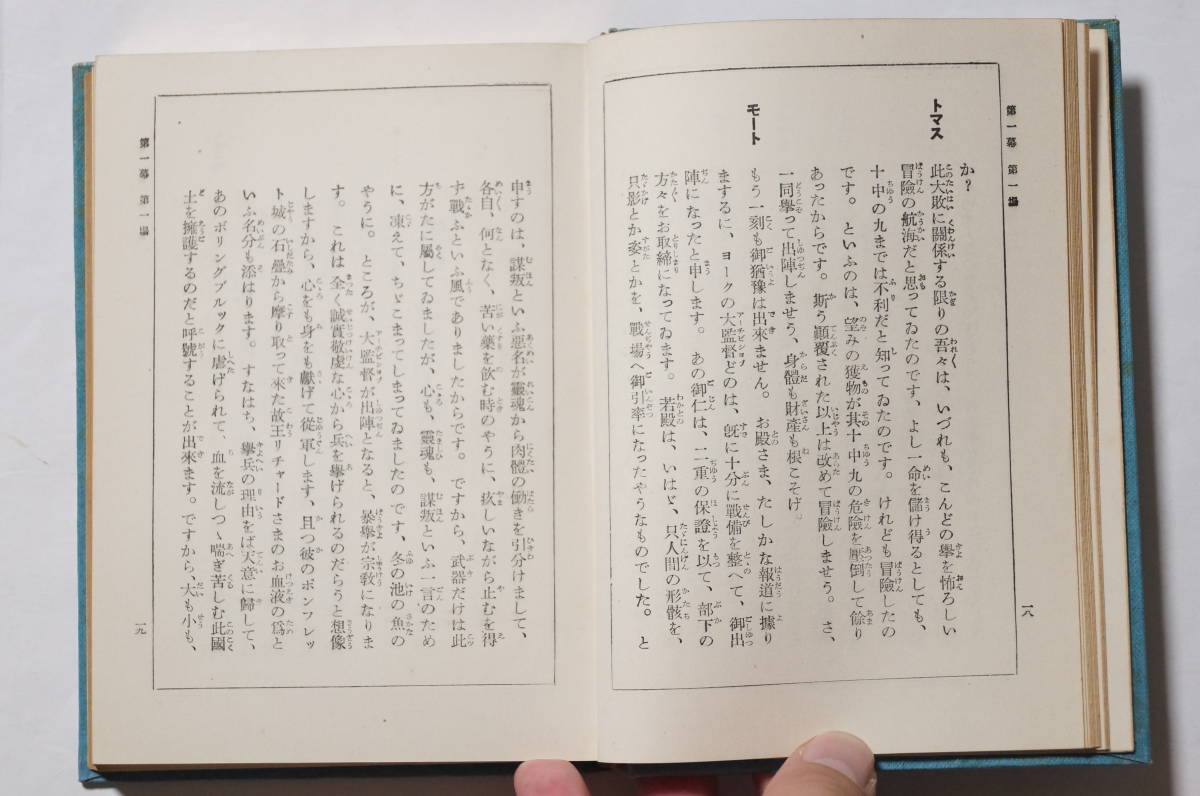 第一幕 第一場
か?
トマス
此大敗に關係する限りの吾々は、いづれも、こんどの擧を怖ろしい
冒險の航海だと思ってゐたのです、よし一命を儲け得るとしても、
十中の九までは不利だと知ってゐたのです。けれども冒險したの
です。といふのは、望みの獲物が其十中九の危險を壓倒して餘り
あったからです。斯う顚覆された以上は改めて冒險しませう。さ、
一同擧って出陣しませう、身體も財產も根こそげ。
モート
もう一刻も御猶豫は出來ません。お殿さま、たしかな報道に據り
まするに、ヨークの大監督どのは、旣に十分に戰備を整へて、御出
陣になったと申します。あの御仁は、二重の保證を以て、部下の
方々をお取締になってゐます。若殿は、いはゞ、只人間の形骸を、
只影とか姿とかを、戰場へ御引率になったやうなものでした。と
一八
第一幕 第一場
申すのは、謀叛といふ惡名が靈魂から肉體の働きを引分けまして、
各自、何となく、苦い藥を飮む時のやうに、疚しいながら止むを得
ず戰ふといふ風でありましたからです。ですから、武器だけは此
方がたに屬してゐましたが、心も、靈魂も、謀叛といふ一言のため
に、凍えて、ちゞこまってしまってゐましたのです、冬の池の魚の
やうに。ところが、大監督が出陣となると、暴擧が宗敎になりま
す。これは全く誠實敬虔な心から兵を擧げられるのだらうと想像
しますから、心をも身をも獻げて從軍します、且つ彼のポンフレッ
ト城の石疊から摩り取って來た故王リチャードさまのお血液の爲と
いふ名分も添はります。すなはち、擧兵の理由をば天意に歸して、
あのボリングブルックに虐げられて、血を流しつゝ喘ぎ苦しむ此國
土を擁護するのだと呼號することが出來ます。ですから、大も小も、
一九